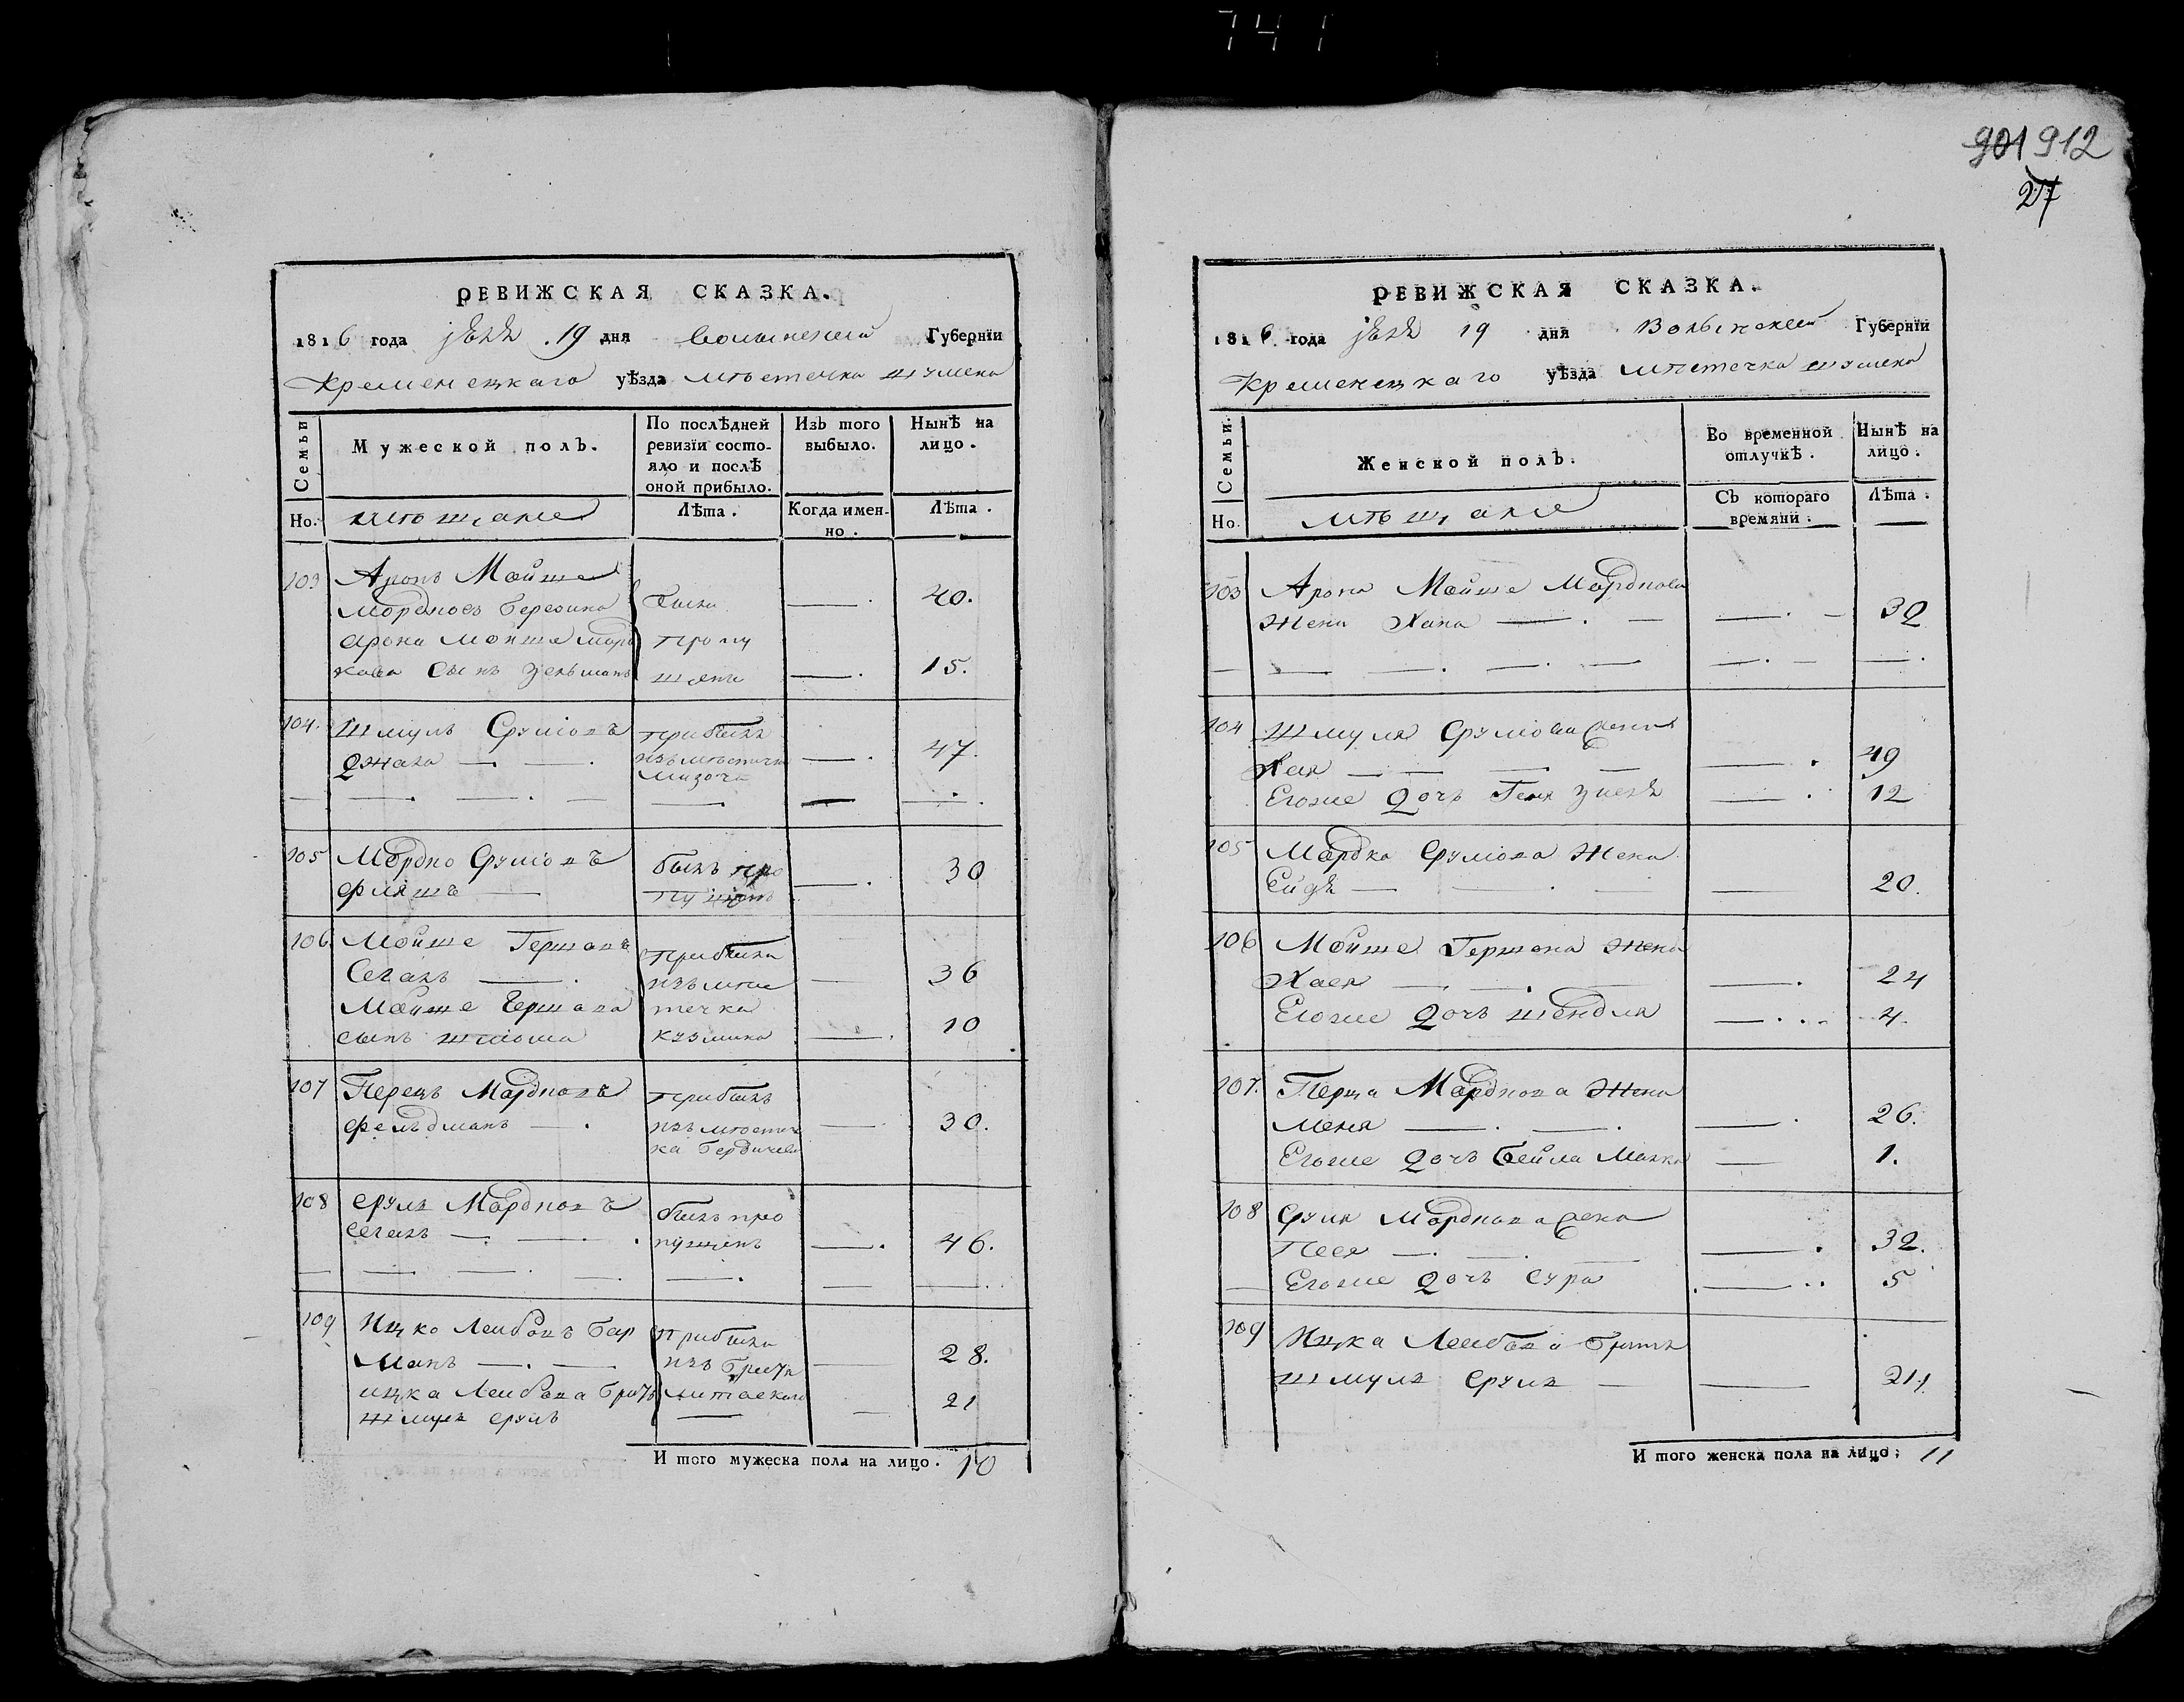 741
901 912
27
РЕВИЖСКАЯ СКАЗКА.
1816 года 19 дня Волынской Губернїи
Кременецкаго уѣзда мѣстечка Шумска
Семьи
Мужеской полъ.
По послѣдней ревизїи состояло и послѣ оной прибыло.
Изъ того выбыло.
Нынѣ на лицо.
Но.
мѣщане
Лѣта.
Когда именно.
Лѣта.
103 Аронъ Мойше
Мордковъ были 40.
Арона Мойше Морд пропу
кова сынъ Зельманъ щены 15.
104. Шмуль Сруліовъ прибылъ
изъ мѣстечка 47.
Мизоча
105 Мордко Сруліовъ былъ про 30
Фляшъ пущенъ
106 Мойше Гершовъ прибыли
Сеганъ изъ мѣс 36
Мойше Гершова течка
сынъ Шлиома 10
107 Перецъ Мордковъ прибылъ
Фельдманъ изъ мѣстеч 30.
ка Бердичева
108 Сруль Мордковъ былъ про
Сеганъ пущенъ 46.
109 Ицко Лейбовъ Бер прибыли
манъ изъ 28.
Ицка Лейбова братъ 21
Шмуль Сруль
И того мужеска пола на лицо. 10
РЕВИЖСКАЯ СКАЗКА.
1816 года 19 дня Волынской Губернїи
Кременецкаго уѣзда мѣстечка Шумска
Семьи.
Женской полъ.
Во временной отлучкѣ.
Нынѣ на лицо.
Но.
мѣщане
Съ котораго времяни.
Лѣта.
103 Арона Мойше Мордкова
жена Хана 32
104 Шмуля Сруліова жена
Хая 49
Егоже дочь 12
105 Мордка Сруліова жена
Сйдя 20.
106 Мойше Гершова жена
Хаея 24
Егоже дочь Шендля 4.
107. Перца Мордкова жена
Меня 26.
Егоже дочь Бейла Малка 1.
108 Сруля Мордкова жена
Песя 32.
Егоже дочь Сура 5
109 Ицка Лейбова брата
Шмуля Сруля 21
И того женска пола на лицо; 11